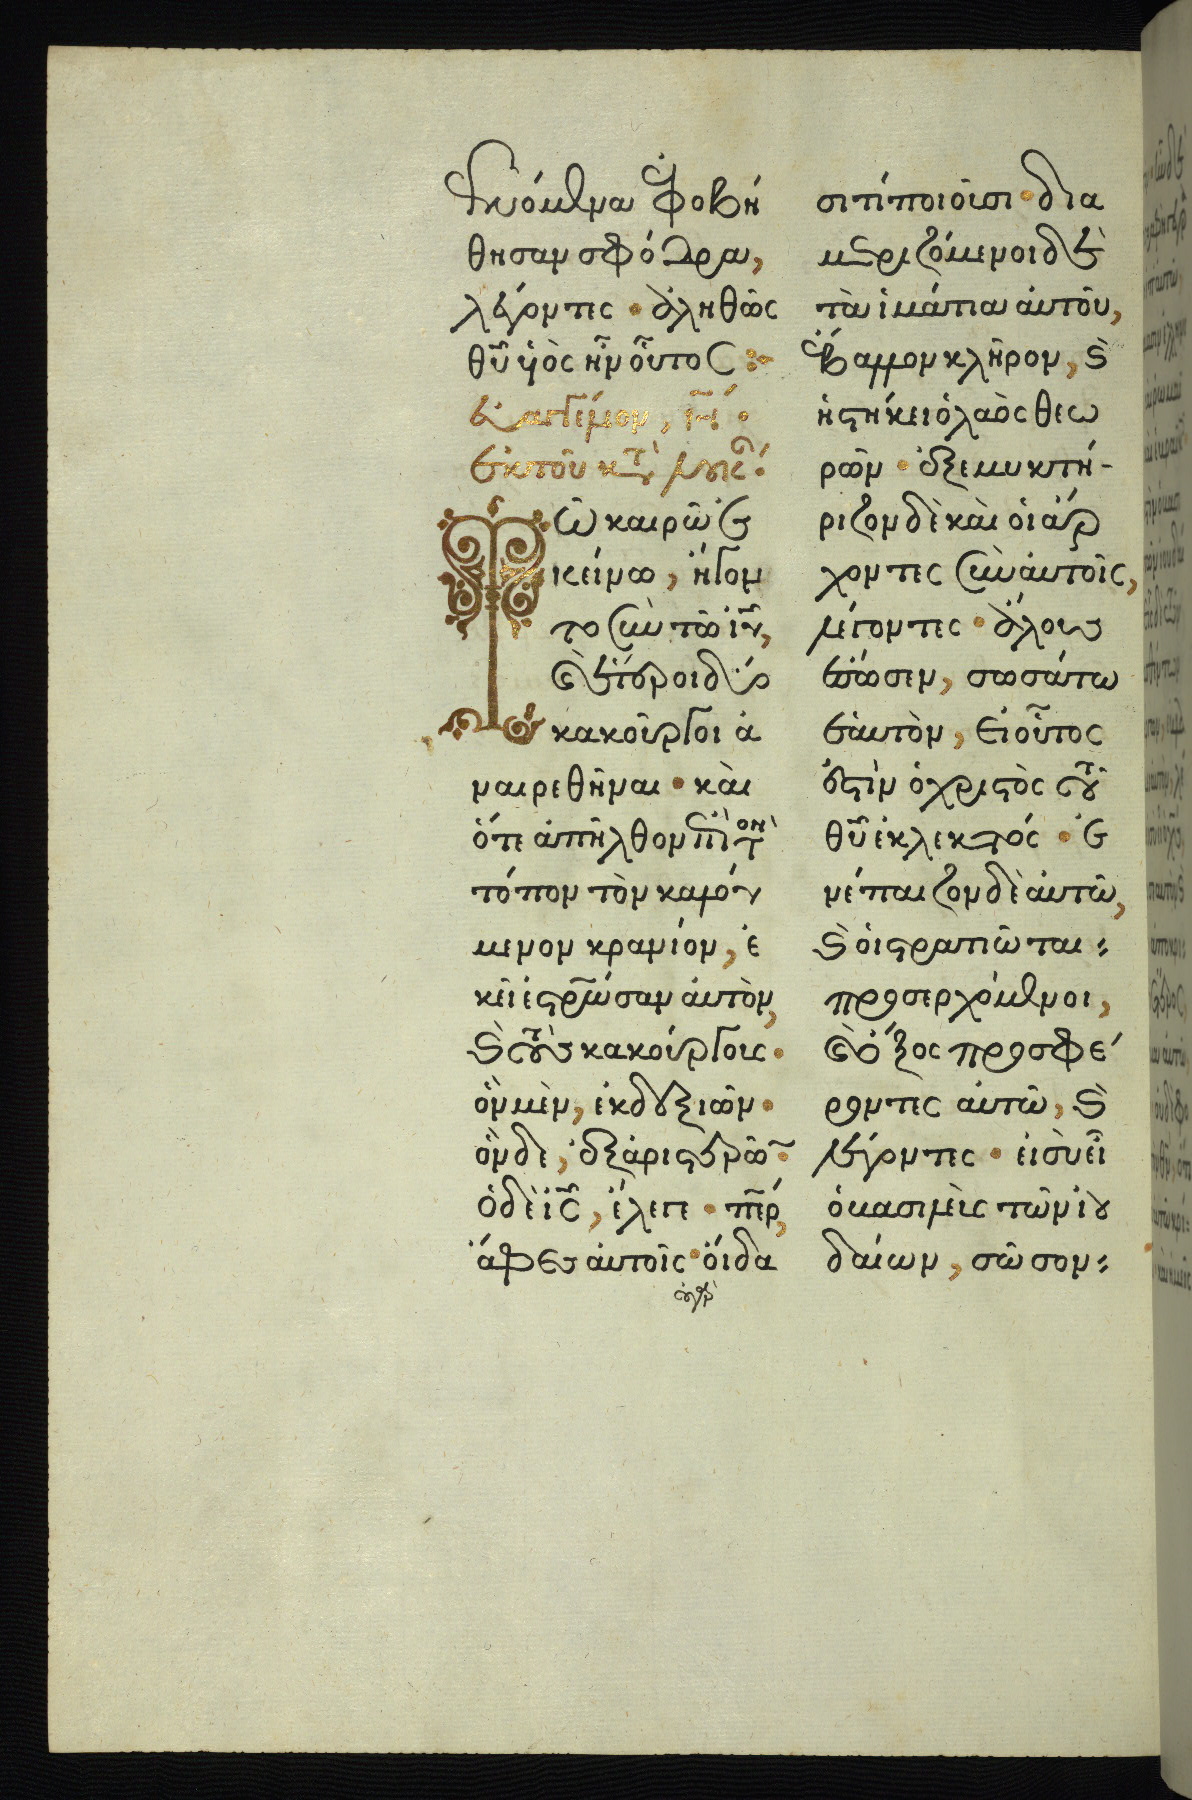 γενόμενα ἐφοβή
θησαν σφόδρα,
λέγοντες · ἀληθῶς
θῦ υἱὸς ἦν οὗτος :
Εὐαγγέλιον, η ·
ἐκ τοῦ κτ λουκ ·
Τῶ καιρῶ ἐ
κείνω, ἤγον
το σὺν τῶ ἰῦ,
καὶ ἕτεροι δύο
κακοῦργοι ἀ
ναιρεθῆναι · καὶ
ὅτε ἀπῆλθον ἐπὶ τὸν
τόπον τὸν καλού
μενον κρανίον, ἐ
κεῖ ἐσταύρωσαν αὐτὸν,
καὶ τοὺς κακούργους ·
ὃν μὲν, ἐκ δεξιῶν ·
ὃν δε, ἐξ ἀριστερῶν ·
ὁ δὲ ἰς, ἔλεγε · περ,
ἄφες αὐτοῖς · οὐ γὰρ οἴδα
σι τί ποιοῦσι · δια
μεριζόμενοι δὲ
τὰ ἱμάτια αὐτοῦ,
ἔβαλλον κλῆρον, καὶ
ἡστήκει ὁ λαὸς θεω
ρῶν · ἐξεμυκτή-
ριζον δὲ καὶ οἱ ἄρ
χοντες σὺν αὐτοῖς,
λέγοντες · ἄλλους
ἔσωσεν, σωσάτω
ἑαυτὸν, εἰ οὗτος
ἐστὶν ὁ χριστὸς τοῦ
θῦ ἐκλεκτός · ἐ
νέπαιζον δὲ αὐτῶ,
καὶ οἱ στρατιῶται
προσερχόμενοι,
καὶ ὄξος προσφέ
ροντες αὐτῶ, καὶ
λέγοντες · εἰ σὺ εἶ
ὁ βασιλεὺς τῶν ἰου
δαίων, σῶσον